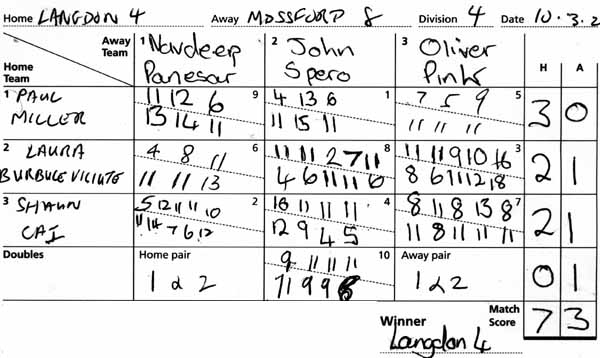 Home LANGDON 4 Away MOSSFORD 8 Division 4 Date 10.3.2
Away Team 1 Navdeep 2 John 3 Oliver H A
Home Team Panesar Spero Pink
1 PAUL 11 12 6 9 4 13 6 1 7 5 9 5 3 0
MILLER 13 14 11 11 15 11 11 11 11
2 LAURA 4 8 11 6 11 11 2 7 11 8 11 11 9 10 16 3 2 1
11 11 13 4 6 11 11 6 8 6 11 12 18
3 SHAUN 5 12 11 11 10 2 16 11 11 11 4 8 11 8 13 8 7 2 1
CAI 11 14 7 6 12 12 9 4 5 11 8 11 11 11
Doubles Home pair 9 11 11 11 10 Away pair 0 1
1 & 2 11 9 9 8 1 & 2
Match Score 7 3
Winner Langdon 4